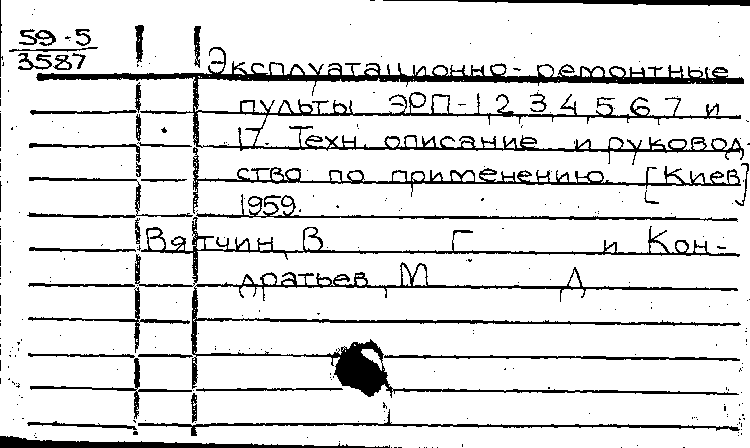 59-5
3587
Эксплуатационно-ремонтные
пульты ЭРП-1,2,3,4,5,6,7 и
17. Техн. описание и руковод-
ство по применению. [Киев]
1959.
Вятчин, В. Г. и Кон-
дратьев, М. Д.